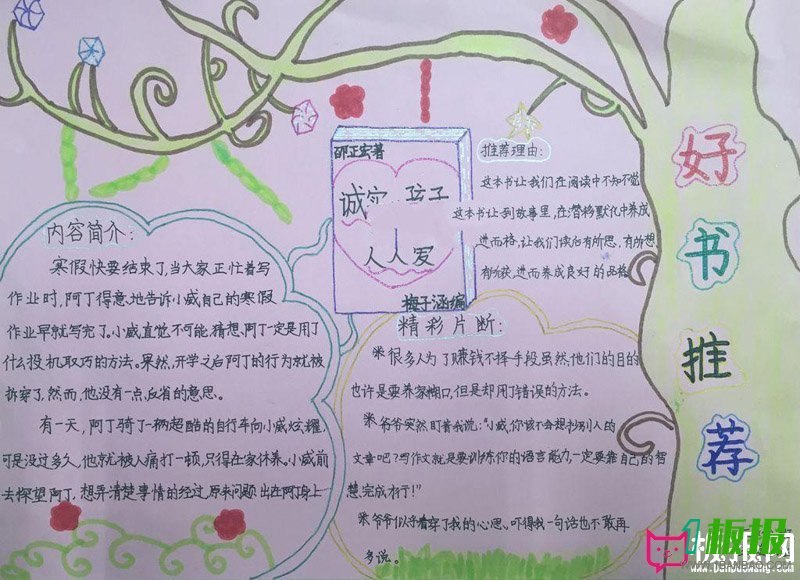 好书推荐
邵正宏著
诚实 孩子
人人爱
梅子涵编
推荐理由:
这本书让我们在阅读中不知不觉
这本书让到故事里,在潜移默化中养成
进而格,让我们读后有所思,有所想
有所获,进而养成良好的品格
内容简介:
寒假快要结束了,当大家正忙着写
作业时,阿丁得意地告诉小威自己的寒假
作业早就写完了。小威直觉不可能,猜想,阿丁一定是用了
什么投机取巧的方法。果然,开学之后阿丁的行为就被
拆穿了,然而,他没有一点反省的意思。
有一天,阿丁骑了一辆超酷的自行车向小威炫耀,
可是没过多久,他就被人痛打一顿,只得在家休养。小威前
去探望阿丁,想弄清楚事情的经过,原来问题出在阿丁身上
精彩片断:
※很多人为了赚钱不择手段虽然,他们的目的
也许是要养家糊口,但是却用了错误的方法。
※爷爷突然盯着我说:"小威,你该不会想抄别人的
文章吧?写作文就是要训练你的语言能力,一定要靠自己的智
慧完成才行!"
※爷爷似乎看穿了我的心思、吓得我一句话也不敢再
多说。
板报网
www.banbaowang.com